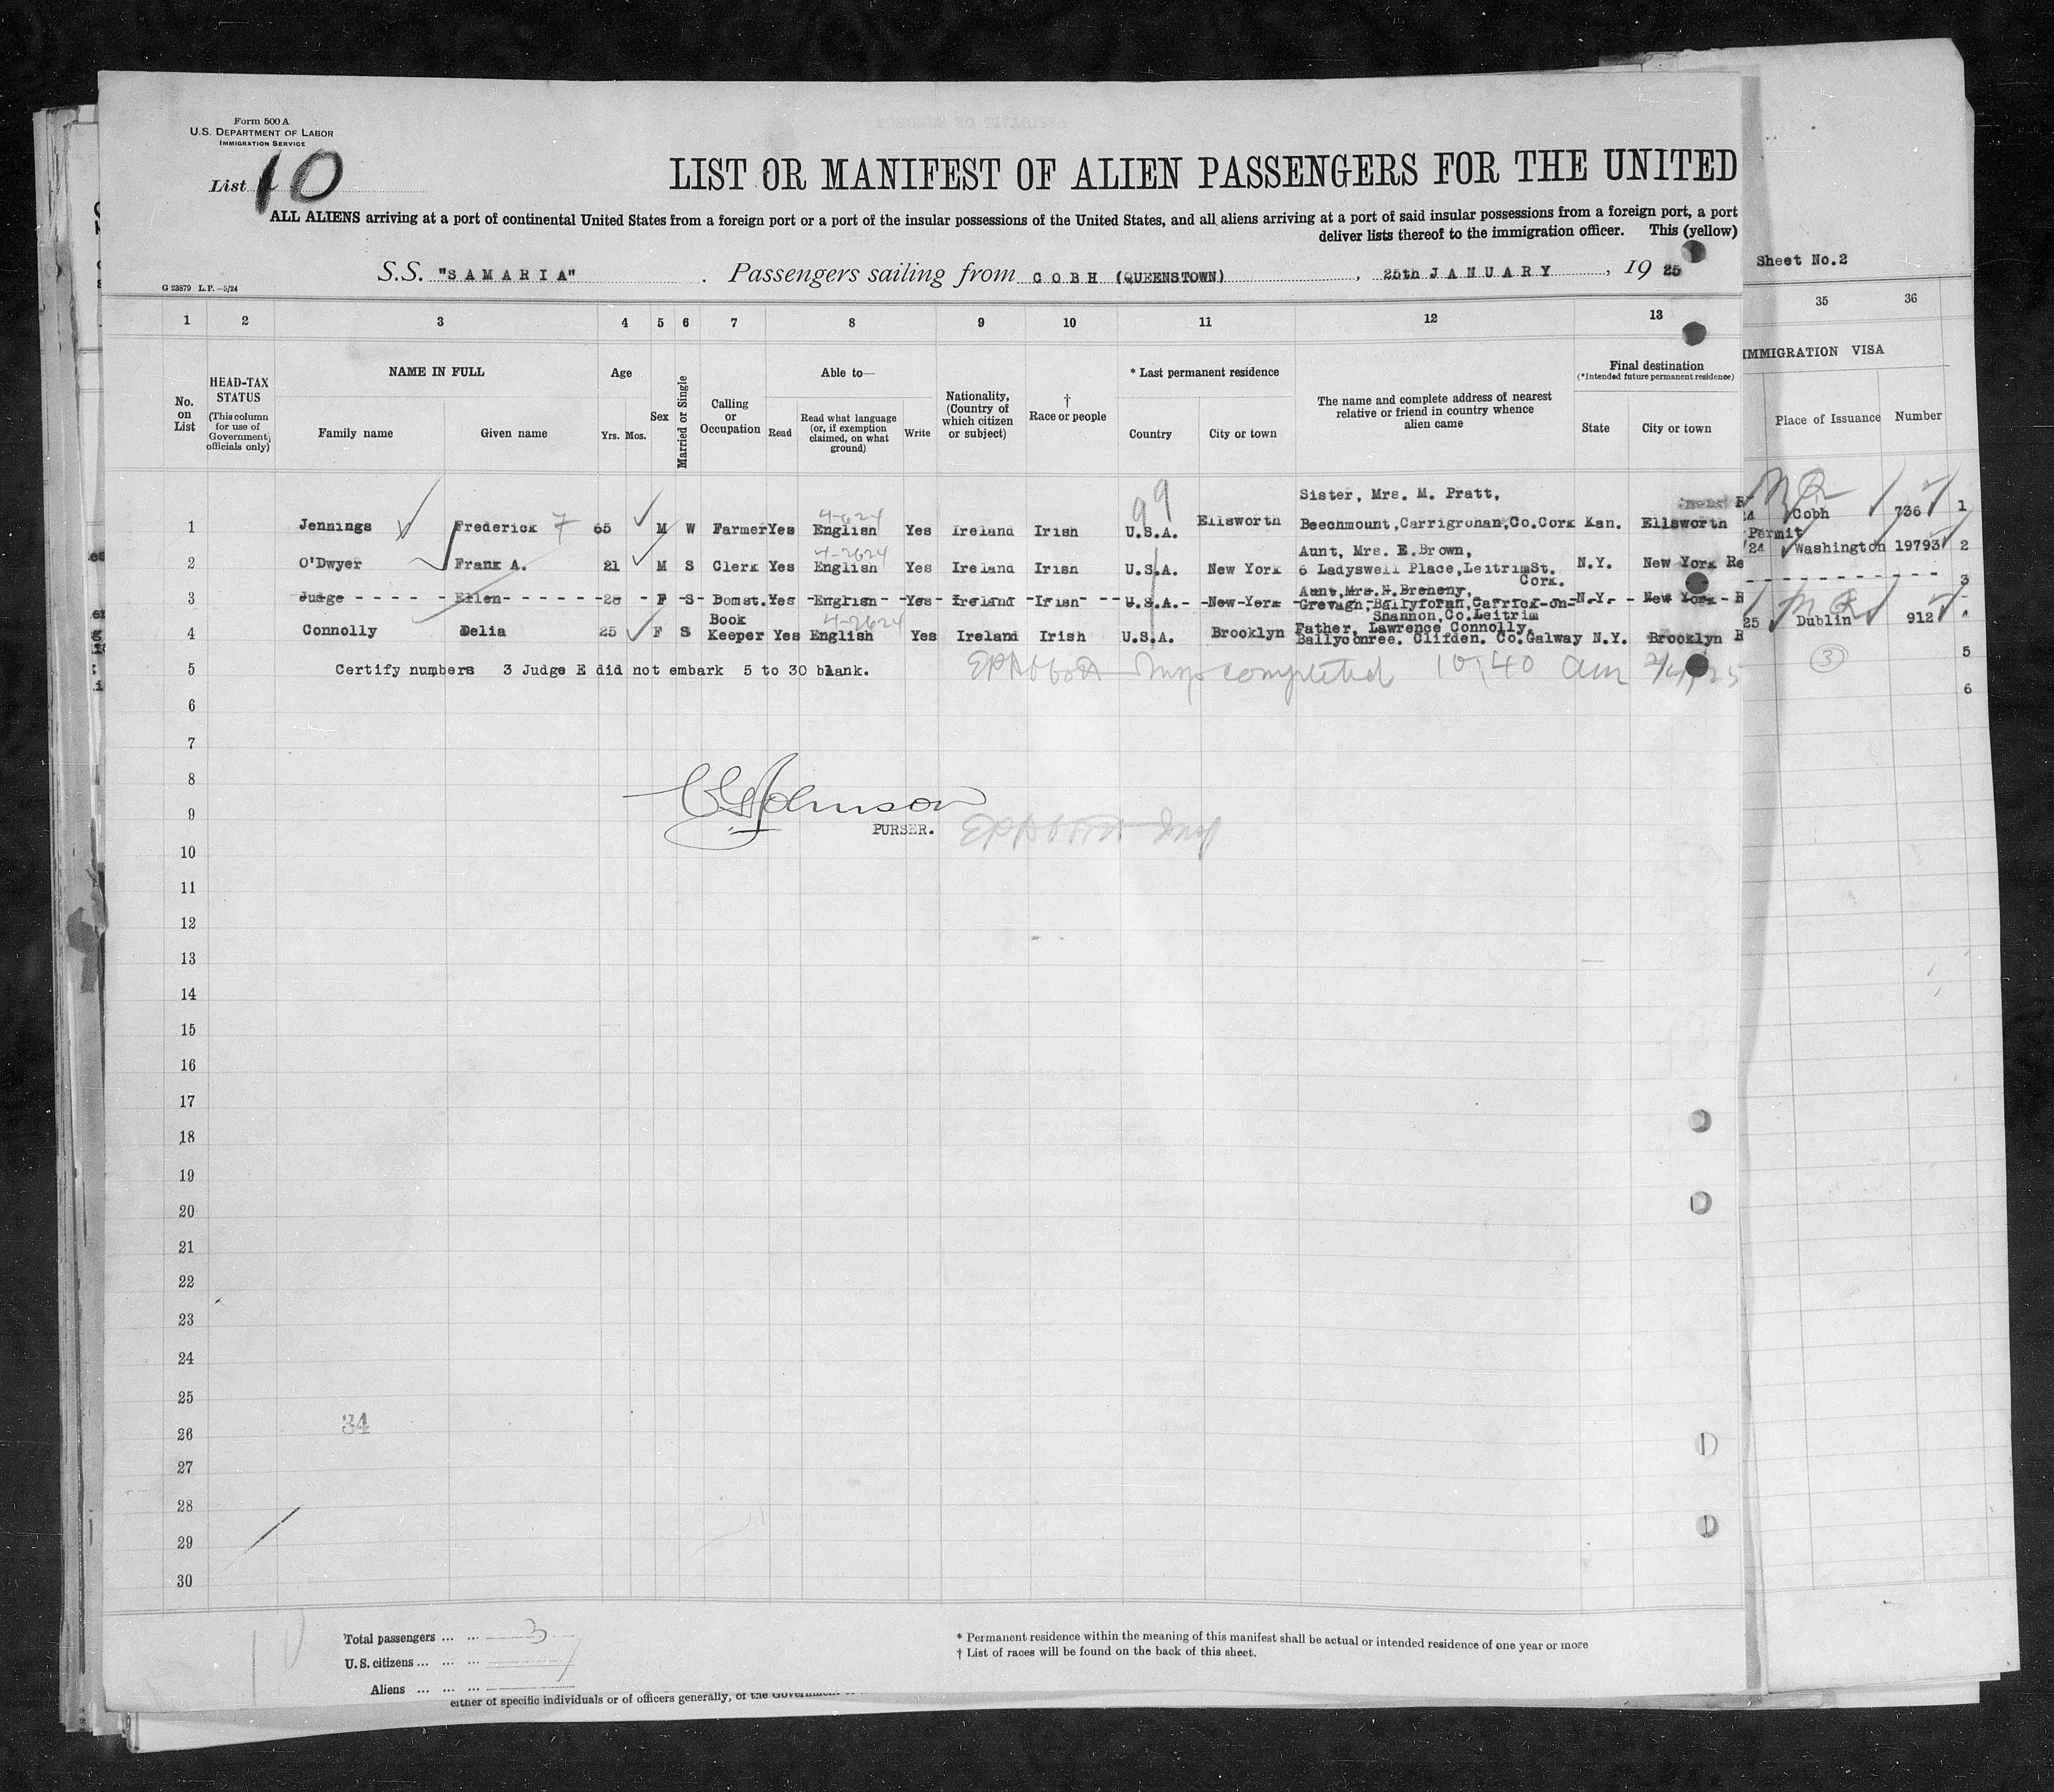 Form 500 A
U.S. DEPARTMENT OF LABOR
IMMIGRATION SERVICE
List 10
LIST OR MANIFEST OF ALIEN PASSENGERS FOR THE UNITED
ALL ALIENS arriving at a port of continental United States from a foreign port or a port of the insular possessions of the United States, and all aliens arriving at a port of said insular possessions from a foreign port, a port
deliver lists thereof to the immigration officer. This (yellow)
S.S. "SAMARIA". Passengers sailing from COBH (QUEENSTOWN), 25th JANUARY, 1925
Sheet No.2
G 23879 L.P.—5/24
1 2 3 4 5 6 7 8 9 10 11 12 13 35 36
No. on List
HEAD-TAX STATUS
(This column for use of Government officials only)
NAME IN FULL
Family name Given name
Age
Yrs. Mos.
Sex
Married or Single
Calling or Occupation
Able to—
Read
Read what language (or, if exemption claimed, on what ground)
Write
Nationality, (Country of which citizen or subject)
† Race or people
* Last permanent residence
Country City or town
The name and complete address of nearest relative or friend in country whence alien came
Final destination
(*Intended future permanent residence)
State City or town
IMMIGRATION VISA
Place of Issuance Number
Sister, Mrs. M. Pratt,
1 Jennings Frederick 65 M W Farmer Yes English Yes Ireland Irish U.S.A. Ellsworth Beechmount,Carrigrohan,Co.Cork Kan. Ellsworth Cobh 736 1
Permit
Aunt, Mrs. E.Brown,
2 O'Dwyer Frank A. 21 M S Clerk Yes English Yes Ireland Irish U.S.A. New York 6 Ladyswell Place,LeitrimSt. N.Y. New York Re /24 Washington 19793 2
Cork.
Aunt,Mrs.
3 Judge Ellen 26 F S Domst. Yes English Yes Ireland Irish U.S.A. New York Grevagh,Ballyforan,Carrick-on- N.Y. New York R 3
Shannon,Co.Leitrim
4 Connolly Delia 25 F S Book Keeper Yes English Yes Ireland Irish U.S.A. Brooklyn Father, Lawrence Connolly, N.Y. Brooklyn R 25 Dublin 912
Ballyconree. Clifden. Co.Galway
5 Certify numbers 3 Judge E did not embark 5 to 30 blank. completed 10,40 am 3 5
6 6
7
8
9
PURSER.
10
11
12
13
14
15
16
17
18
19
20
21
22
23
24
25
34
26
27
28
29
30
Total passengers ... ... 3
U.S. citizens ... ... ...
Aliens ... ... ...
* Permanent residence within the meaning of this manifest shall be actual or intended residence of one year or more
† List of races will be found on the back of this sheet.
either of specific individuals or of officers generally, of the Government